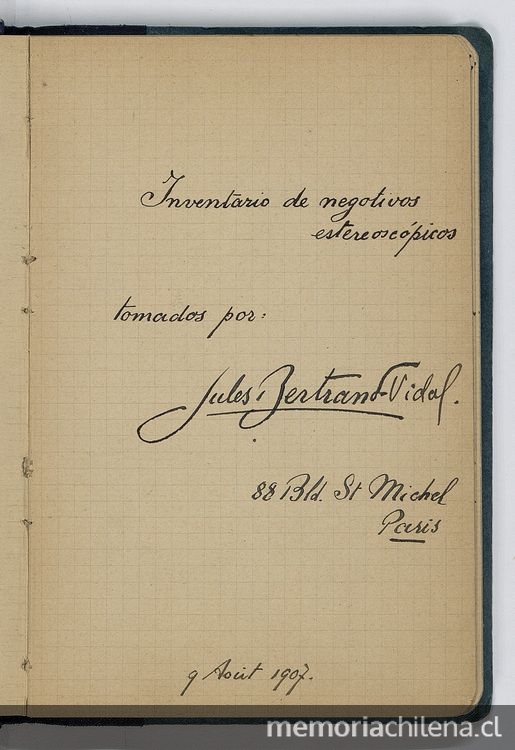 Inventario de negotivos
estereoscópicos
tomados por:
Jules Bertrand-Vidal.
88 Bld. St Michel
Paris
9 Août 1907.
memoriachilena.cl